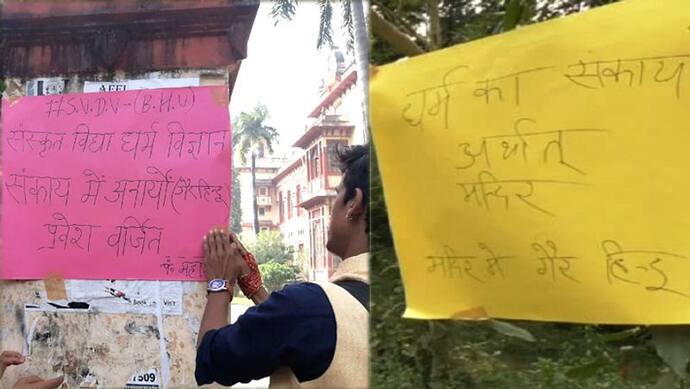 AFFI
#S.V.D.V-(B.H.U)
संस्कृत विद्या धर्म विज्ञान
संकाय में अनार्यों (गैरहिन्दू
प्रवेश वर्जित
BOOK VISIT
1509
धर्म का संकाय
अर्थात्
मन्दिर
मन्दिर में गैर हिन्दू